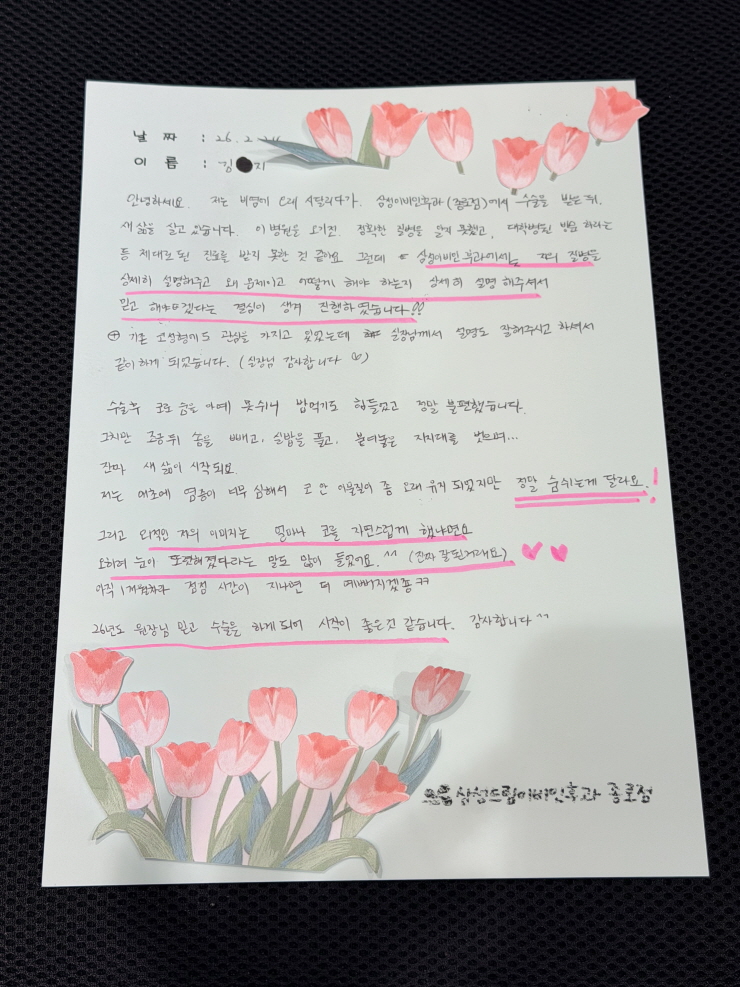 날 짜 : 26. 2. 24
이 름 : 김 지
안녕하세요. 저는 비염에 오래 시달리다가. 삼성이비인후과(종로점)에서 수술을 받은 뒤,
새 삶을 살고 있습니다. 이 병원을 오기전. 정확한 질병을 알지 못했고, 대학병원 방문 하라는
등 제대로 된 진료를 받지 못한 것 같아요 그런데 삼성이비인후과에서는 저의 질병을
상세히 설명해주고 왜 문제이고 어떻게 해야 하는지 상세히 설명해주셔서
믿고 해야겠다는 결심이 생겨 진행하였습니다!!
⊕ 기존 코성형에도 관심을 가지고 있었는데 실장님께서 설명도 잘해주시고 하셔서
같이하게 되었습니다. (실장님 감사합니다 ♡)
수술후 코로 숨을 아예 못쉬니 밥먹기도 힘들었고 정말 불편했습니다.
그치만 조금뒤 솜을 빼고, 실밥을 풀고, 붙여놓은 지지대를 벗으며...
진짜 새 삶이 시작되요
저는 애초에 염증이 너무 심해서 코 안 이물질이 좀 오래 유지 되었지만 정말 숨쉬는게 달라요!
그리고 외적인 저의 이미지는 얼마나 코를 자연스럽게 했냐면요
오히려 눈이 또렷해졌다라는 말도 많이 들었어요.^^ (진짜 잘된거래요)
아직 1개월차라 점점 시간이 지나면 더 예뻐지겠죵ㅋㅋ
26년도 원장님 믿고 수술을 하게되어 시작이 좋은것 같습니다. 감사합니다^^
삼성드림이비인후과 종로점